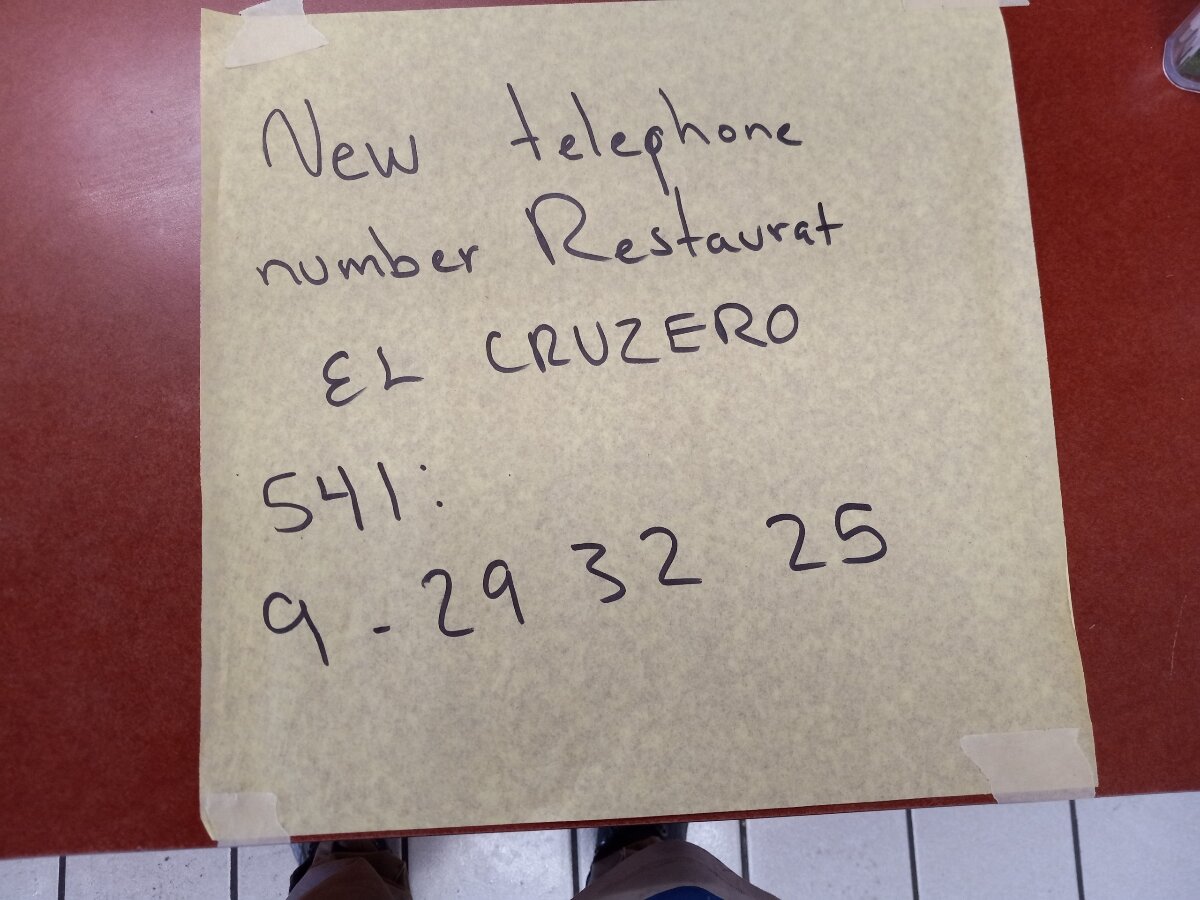 New telephone
number Restaurat
EL CRUZERO
541:
9-29 32 25